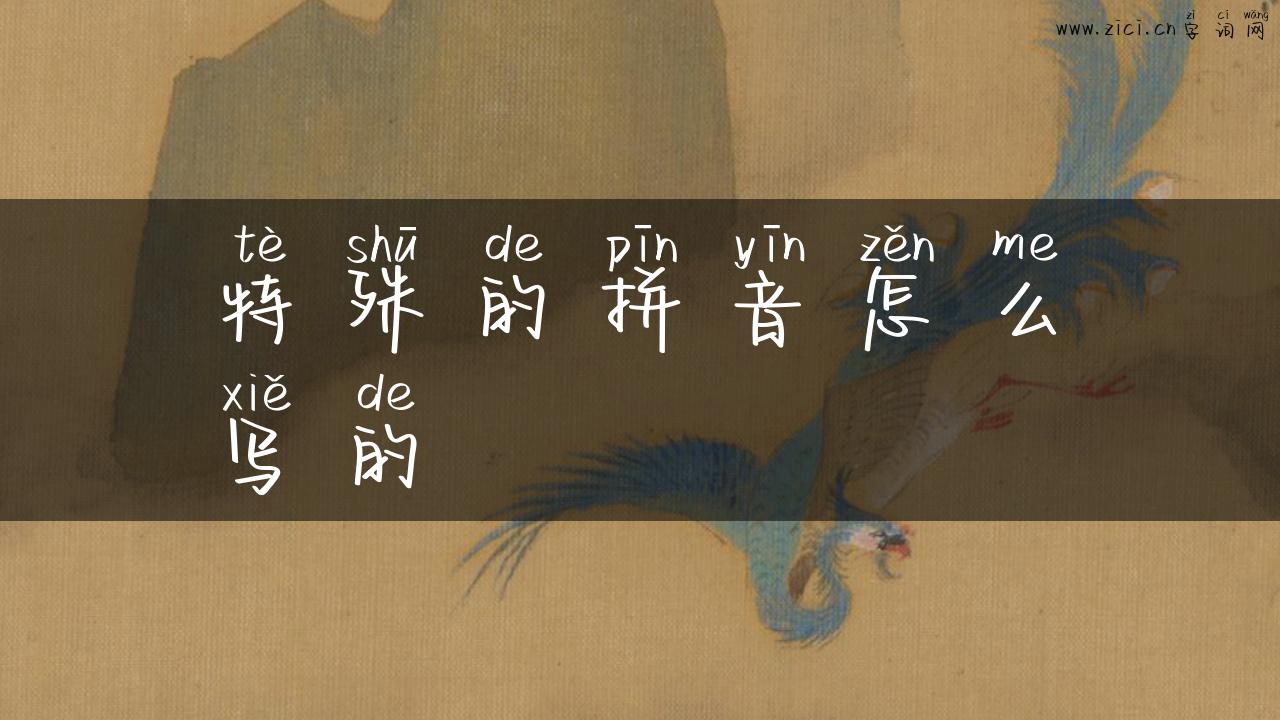 zì cí wǎng
www.zici.cn 字词网
tè shū de pīn yīn zěn me
特殊的拼音怎么
xiě de
写的